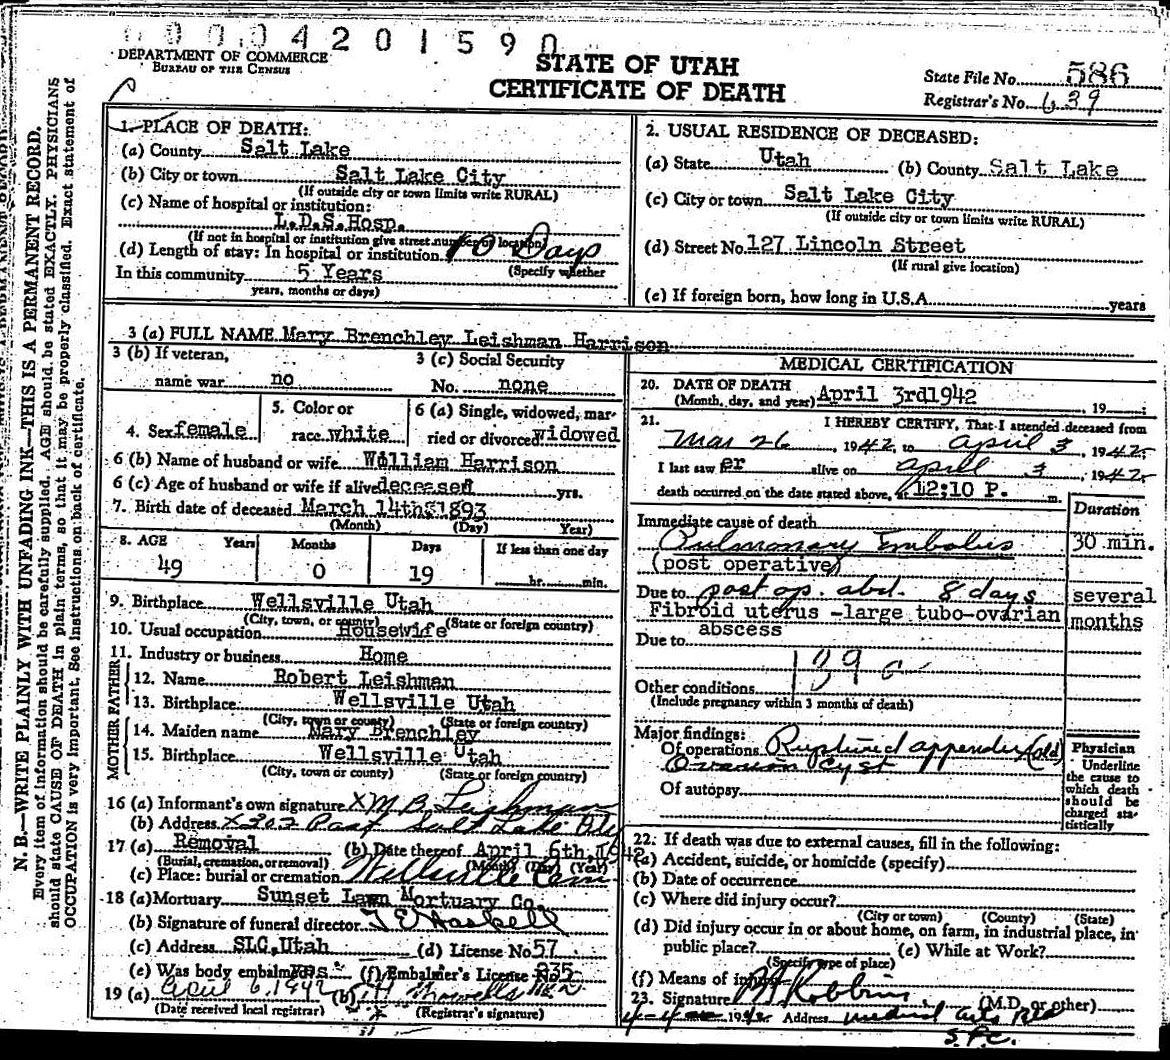 0 0 0 0 4 2 0 1 5 9 0
DEPARTMENT OF COMMERCE
BUREAU OF THE CENSUS
STATE OF UTAH
CERTIFICATE OF DEATH
State File No. 586
Registrar's No. 639
N. B.—WRITE PLAINLY WITH UNFADING INK—THIS IS A PERMANENT RECORD.
Every item of information should be carefully supplied. AGE should be stated EXACTLY. PHYSICIANS
should state CAUSE OF DEATH in plain terms, so that it may be properly classified. Exact statement of
OCCUPATION is very important. See instructions on back of certificate.
1. PLACE OF DEATH:
(a) County Salt Lake
(b) City or town Salt Lake City
(If outside city or town limits write RURAL)
(c) Name of hospital or institution:
L.D.S.Hosp.
(If not in hospital or institution give street number or location)
(d) Length of stay: In hospital or institution 10 Days
(Specify whether
In this community 5 Years
years, months or days)
2. USUAL RESIDENCE OF DECEASED:
(a) State Utah (b) County Salt Lake
(c) City or town Salt Lake City
(If outside city or town limits write RURAL)
(d) Street No. 127 Lincoln Street
(If rural give location)
(e) If foreign born, how long in U.S.A. years
3 (a) FULL NAME Mary Brenchley Leishman Harrison
3 (b) If veteran,
name war no
3 (c) Social Security
No. none
4. Sex female
5. Color or
race white
6 (a) Single, widowed, mar-
ried or divorced widowed
6 (b) Name of husband or wife William Harrison
6 (c) Age of husband or wife if alive deceased yrs.
7. Birth date of deceased March 14th 1893
(Month) (Day) Year)
8. AGE Years Months Days If less than one day
49 0 19 hr. min.
9. Birthplace Wellsville Utah
(City, town, or county) (State or foreign country)
10. Usual occupation Housewife
11. Industry or business Home
FATHER
12. Name Robert Leishman
13. Birthplace Wellsville Utah
(City, town or county) (State or foreign country)
MOTHER
14. Maiden name Mary Brenchley
15. Birthplace Wellsville Utah
(City, town or county) (State or foreign country)
16 (a) Informant's own signature X M B Leishman
(b) Address X 302 East Salt Lake City
17 (a) Removal (b) Date thereof April 6th, 1942
(Burial, cremation, or removal) (Month) (Day) (Year)
(c) Place: burial or cremation Wellsville Cem
18 (a) Mortuary Sunset Lawn Mortuary Co.
(b) Signature of funeral director T E Haskell
(c) Address SLC, Utah (d) License No 57
(e) Was body embalmed yes (f) Embalmer's License No 235
19 (a) April 6, 1942 (b)
(Date received local registrar) (Registrar's signature)
MEDICAL CERTIFICATION
20. DATE OF DEATH
(Month, day, and year) April 3rd1942, 19
21. I HEREBY CERTIFY, That I attended deceased from
Mar 26 1942, to April 3, 1942.
I last saw er alive on April 3, 1942.
death occurred on the date stated above, at 12:10 P. m.
Duration
Immediate cause of death
Pulmonary Embolus 30 min.
(post operative)
Due to post op. abd. 8 days several
Fibroid uterus -large tubo-ovarian months
abscess
Due to
139 a
Other conditions
(Include pregnancy within 3 months of death)
Major findings:
Of operations Ruptured appendix (old)
Ovarian cyst
Of autopsy
Physician
Underline
the cause to
which death
should be
charged sta-
tistically
22. If death was due to external causes, fill in the following:
(a) Accident, suicide, or homicide (specify)
(b) Date of occurrence
(c) Where did injury occur?
(City or town) (County) (State)
(d) Did injury occur in or about home, on farm, in industrial place, in
public place? (e) While at Work?
(Specify type of place)
(f) Means of injury
23. Signature Robbins (M.D. or other)
4-4 19 Address Medical Arts Bld
S.L.C.